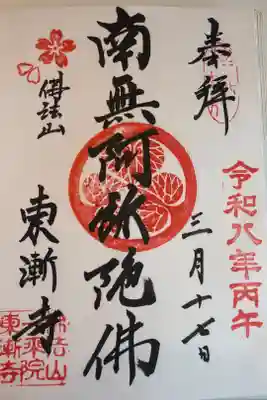 奉拝
令和八年丙午
三月十七日
南無阿弥陀佛
佛法山
東漸寺
東漸寺